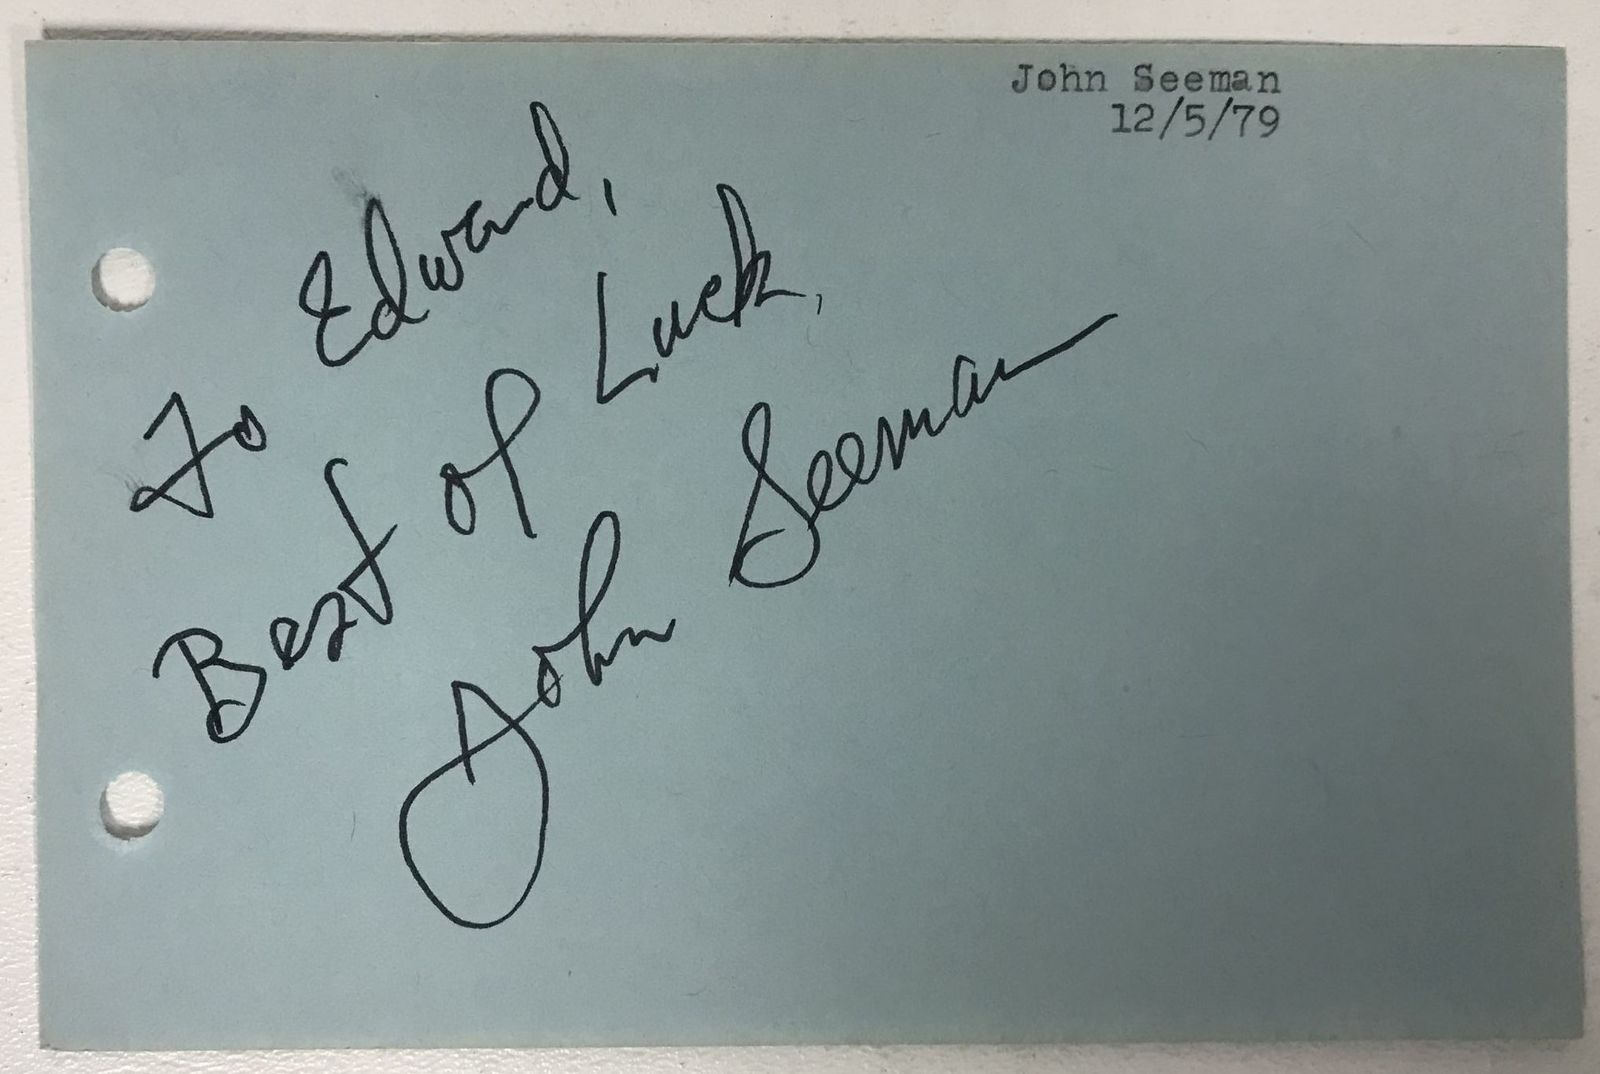 John Seeman
12/5/79
To Edward,
Best of Luck,
John Seeman